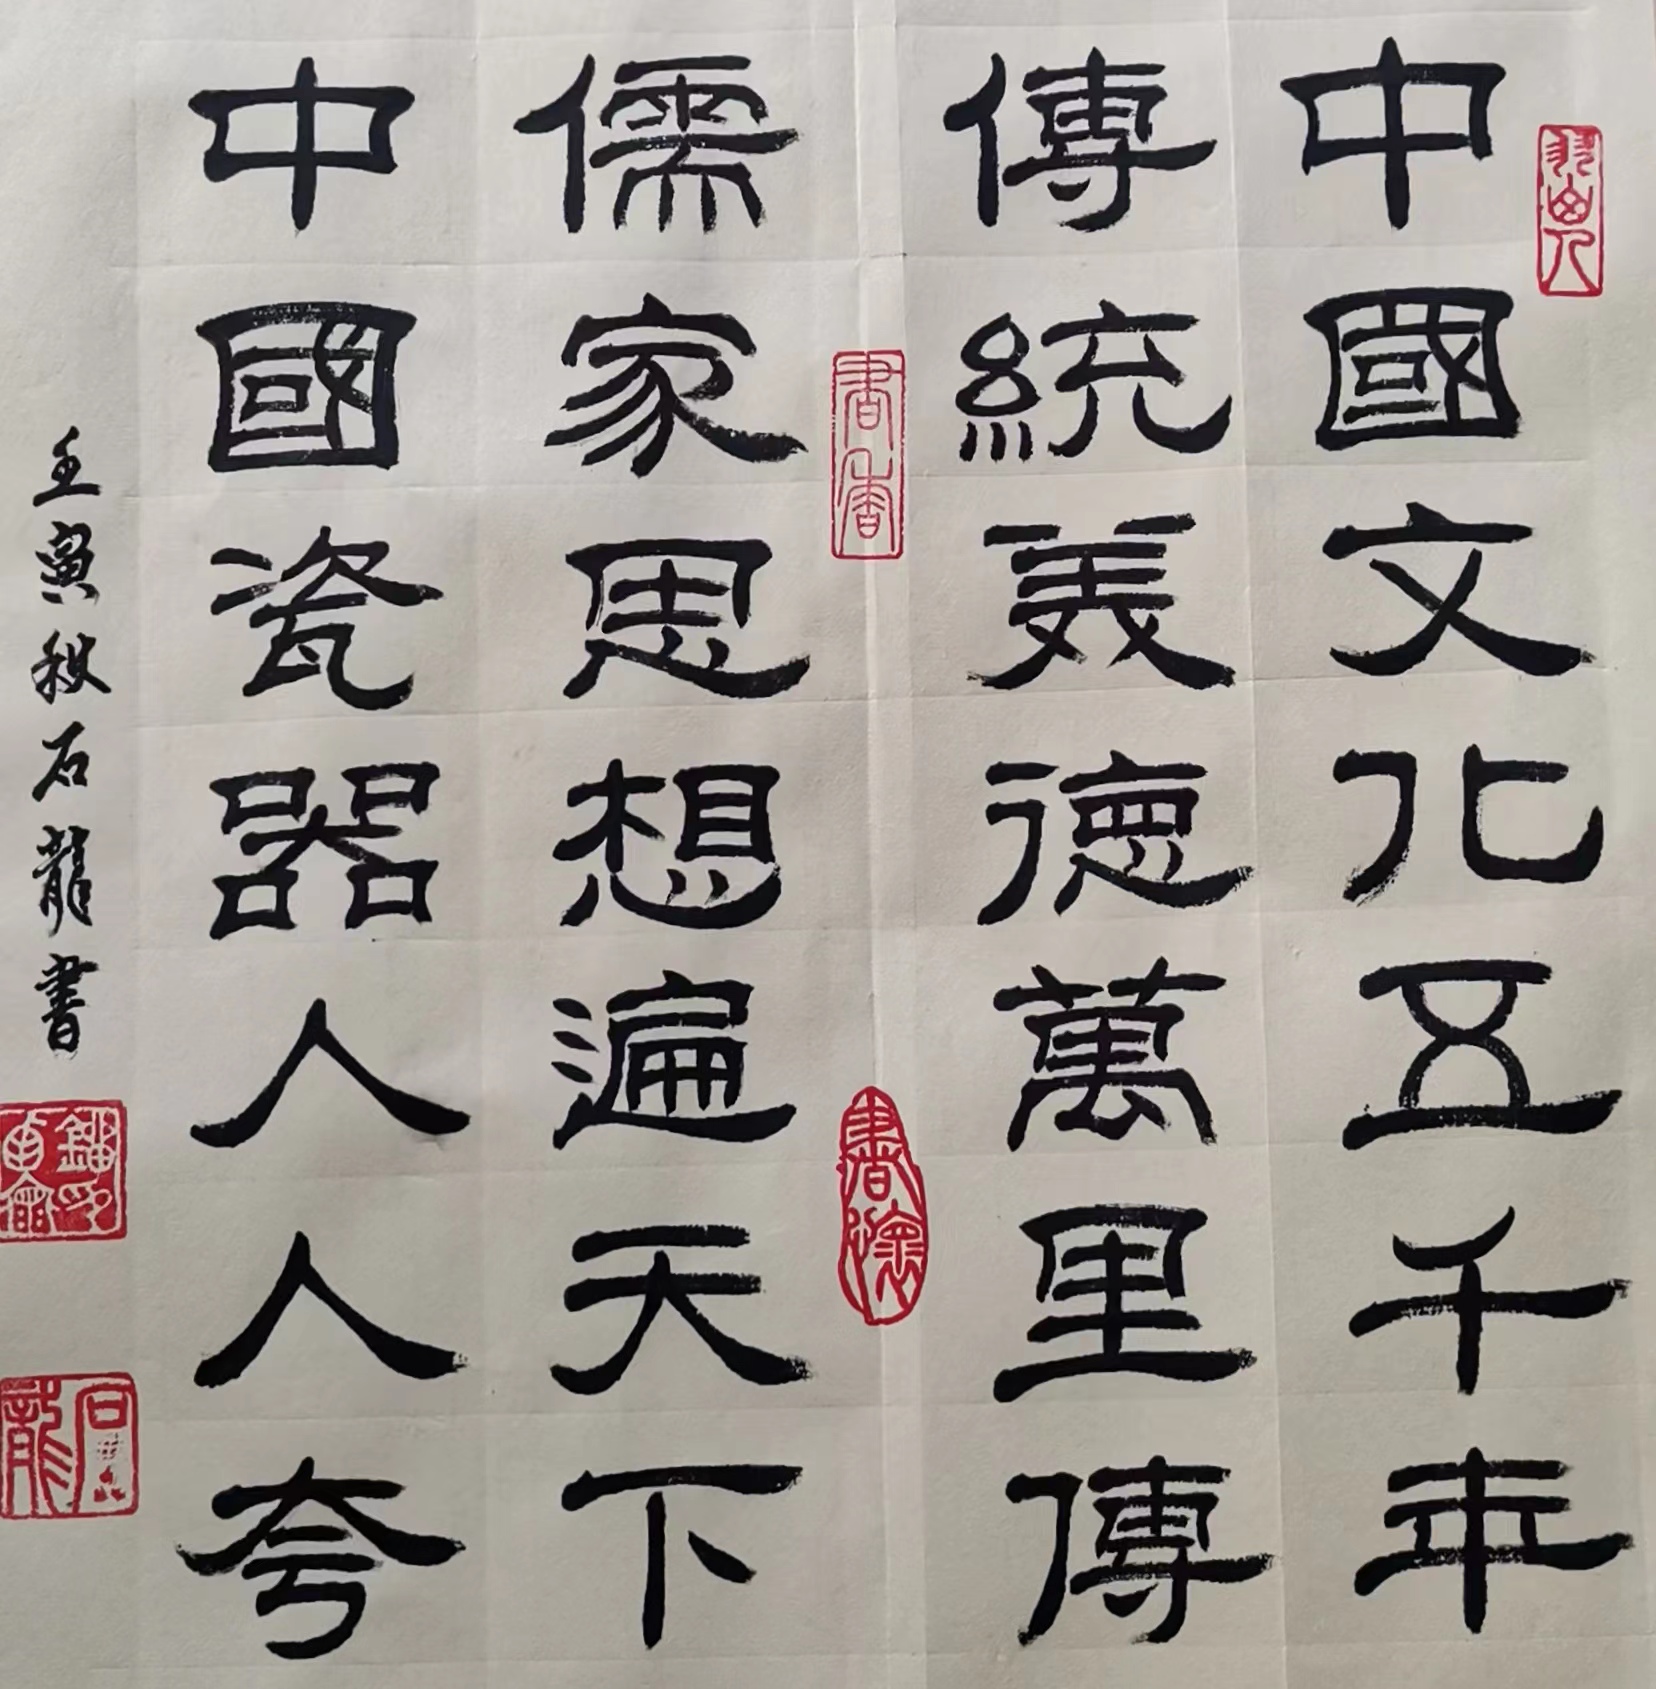 中國文化五千年
傳統美德萬里傳
儒家思想遍天下
中國瓷器人人夸
壬寅秋石龍書
書香
石龍